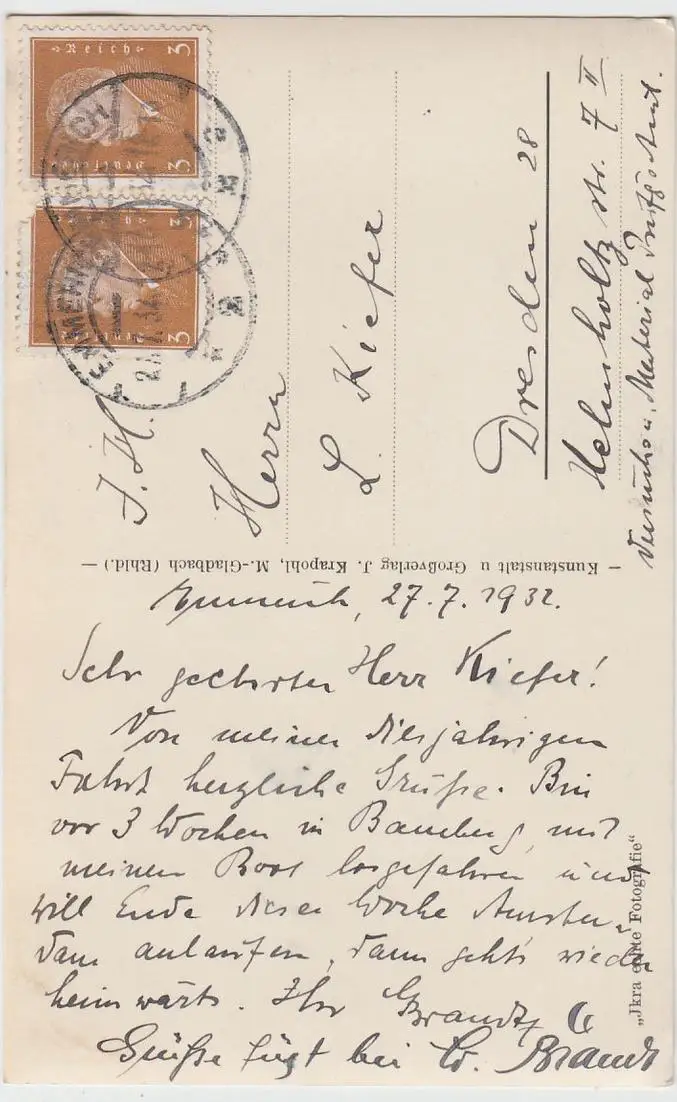 Reich
3
3
Deutsches
3
3
EMMERICH
J. H.
Herrn
L. Kiefer
Dresden 28
Helmholtz str. 7 II
Versuchs u. Material Prüfgs Amt.
— Kunstanstalt u Großverlag J. Krapohl, M.-Gladbach (Rhld.) —
Emmerich, 27.7.1932.
Sehr geehrter Herr Kiefer!
Von meiner diesjährigen
Fahrt herzliche Grüße. Bin
vor 3 Wochen in Bamberg mit
meinem Boot losgefahren und
will Ende dieser Woche Amster-
dam anlaufen, dann geht's wieder
heimwärts. Ihr GBrandt
Grüße fügt bei Brandt
„Jkra echte Fotografie"